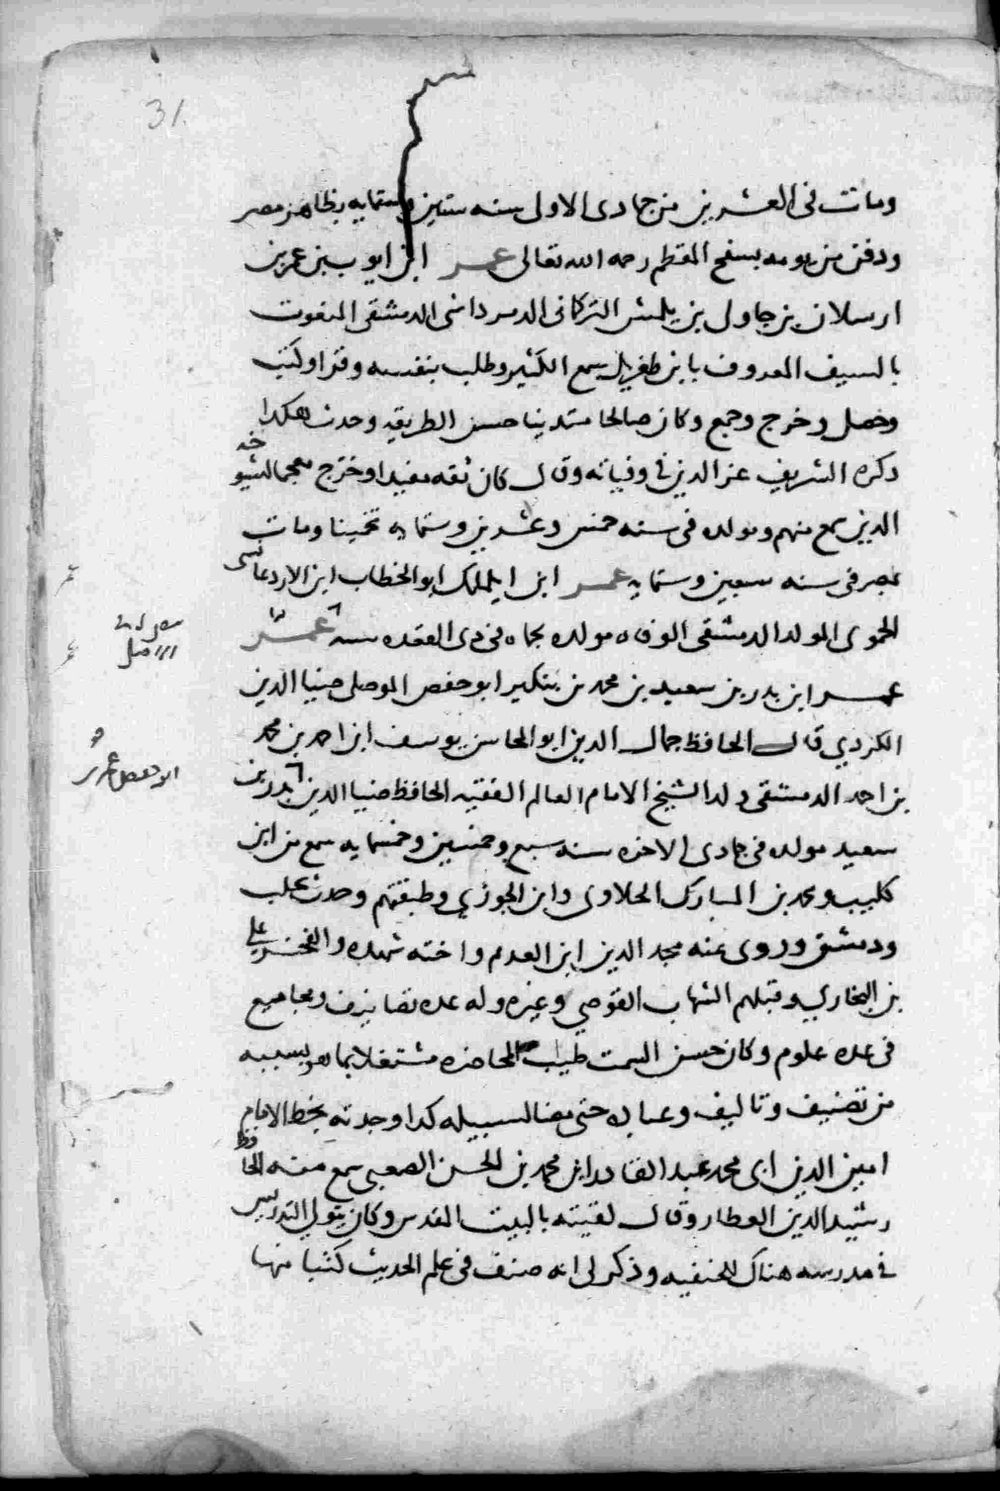 31
ومات فى العشرين من جمادى الاولى سنه ستين وستمايه بظاهر مصر
ودفن من يومه بسفح المقطم رحمه الله تعالى عمر ابن ايوب بن عمر بن
ارسلان بن جاول بن يلمش التركمانى الدمرداشى الدمشقى المنعوت
بالسيف المعروف بابن طغريل سمع الكثير وطلب بنفسه وقرا وكتب
وحصل وخرج وجمع وكان صالحا متدينا حسن الطريقه وحدث هكدا
دكره الشريف عز الدين فى وفياته وقال كان ثقه مفيدا وخرج معجما لشيوخه
الدين سمع منهم ومولده فى سنه خمس وعشرين وستمايه تخمينا ومات
بمصر فى سنه سبعين وستمايه عمر ابن ايلملك ابو الخطاب ابن
الحموى المولد الدمشقى الوفاه مولده بحماه فى دى القعده سنه
عمر ابن بدر بن سعيد بن محمد بن بنكير ابو حفص الموصلى ضيا الدين
الكردي قال الحافظ جمال الدين ابو المحاسن يوسف ابن احمد بن محمد
بن احمد الدمشقى ولد الشيخ الامام العالم الفقيه الحافظ ضيا الدين بدر بن
سعيد مولده فى جمادى الاخره سنه سبع وخمسين وخمسمايه سمع من ابن
كليب ومحمد بن المبارك الحلاوى وابن الجوزي وطبقتهم وحدث بحلب
ودمشق وروى عنه مجد الدين ابن العديم واخته شهده والفخر على
بن البخاري وقبلهم الشهاب القوصي وغيره وله عده تصانيف ومجاميع
فى عده علوم وكان حسن السمت طيب المحاضره مشتغلا بما هو بسببه
من تصنيف وتاليف وعباده حتى مضا لسبيله كدا وجدته بخط الامام
امين الدين ابى محمد عبد القادر ابن محمد بن الحسن الصعبى سمع منه الحافظ
رشيد الدين العطار وقال لقيته بالبيت المقدس وكان يتولى التدريس
فى مدرسه هناك للحنفيه وذكر لى انه صنف فى علم الحديث كتبا منها